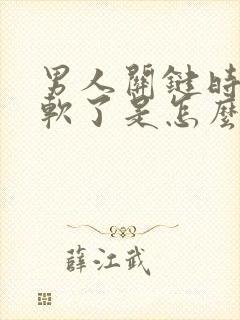 男人關鍵時
軟了是怎麼
薛江武